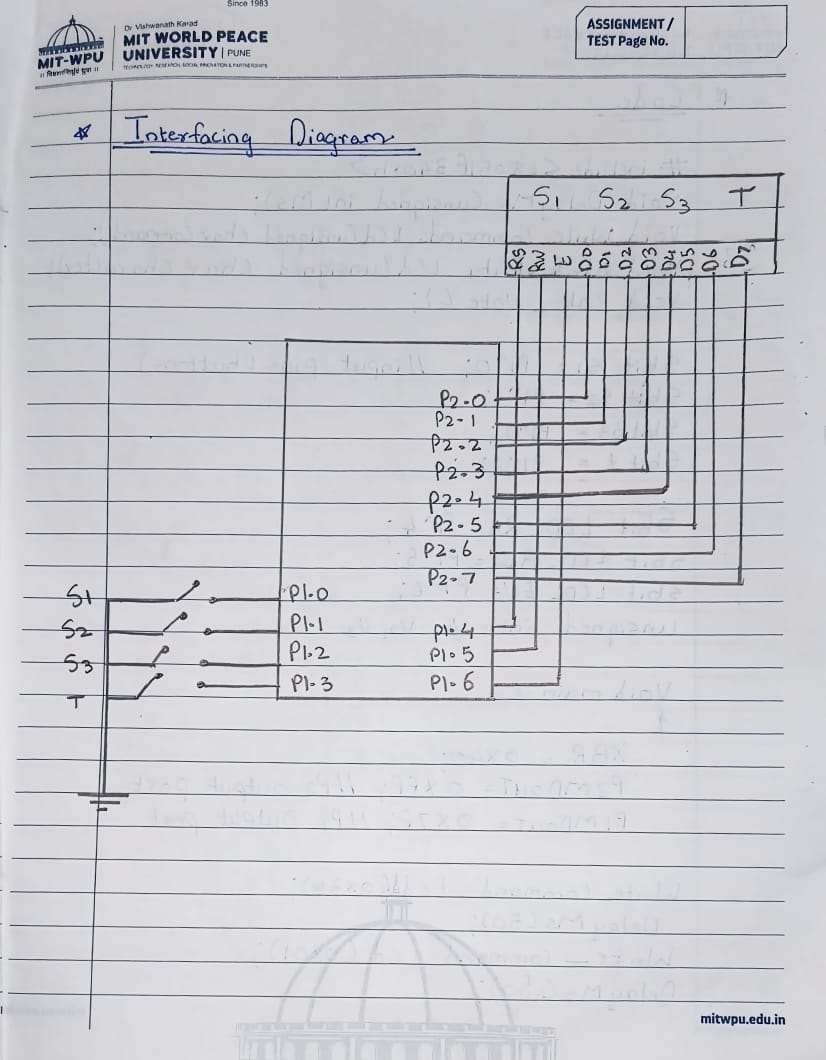 Since 1983
Dr Vishwanath Karad
MIT WORLD PEACE
UNIVERSITY | PUNE
TECHNOLOGY, RESEARCH, SOCIAL INNOVATION & PARTNERSHIPS
MIT-WPU
ASSIGNMENT /
TEST Page No.
Interfacing Diagram
S1 S2 S3 T
RS RW E D0 D1 D2 D3 D4 D5 D6 D7
P2.0
P2.1
P2.2
P2.3
P2.4
P2.5
P2.6
P2.7
S1 P1.0
S2 P1.1 P1.4
S3 P1.2 P1.5
T P1.3 P1.6
mitwpu.edu.in